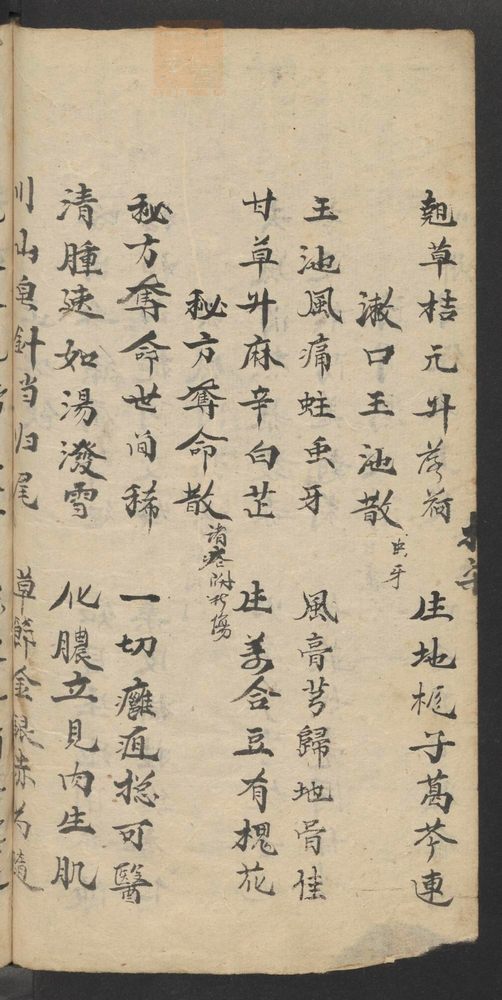 翹草桔元升薄荷　生地梔子葛芩連
漱口玉池散虫牙
玉池風痛蛀虫牙　風膏芎歸地骨佳
甘草升麻辛白芷　生姜合豆有槐花
秘方奪命散諸瘡附打傷
秘方奪命世间稀　一切癰疽捴可醫
清腫速如湯潑雪　化膿立見肉生肌
川山皂針当归尾　草節金銀赤芍隨